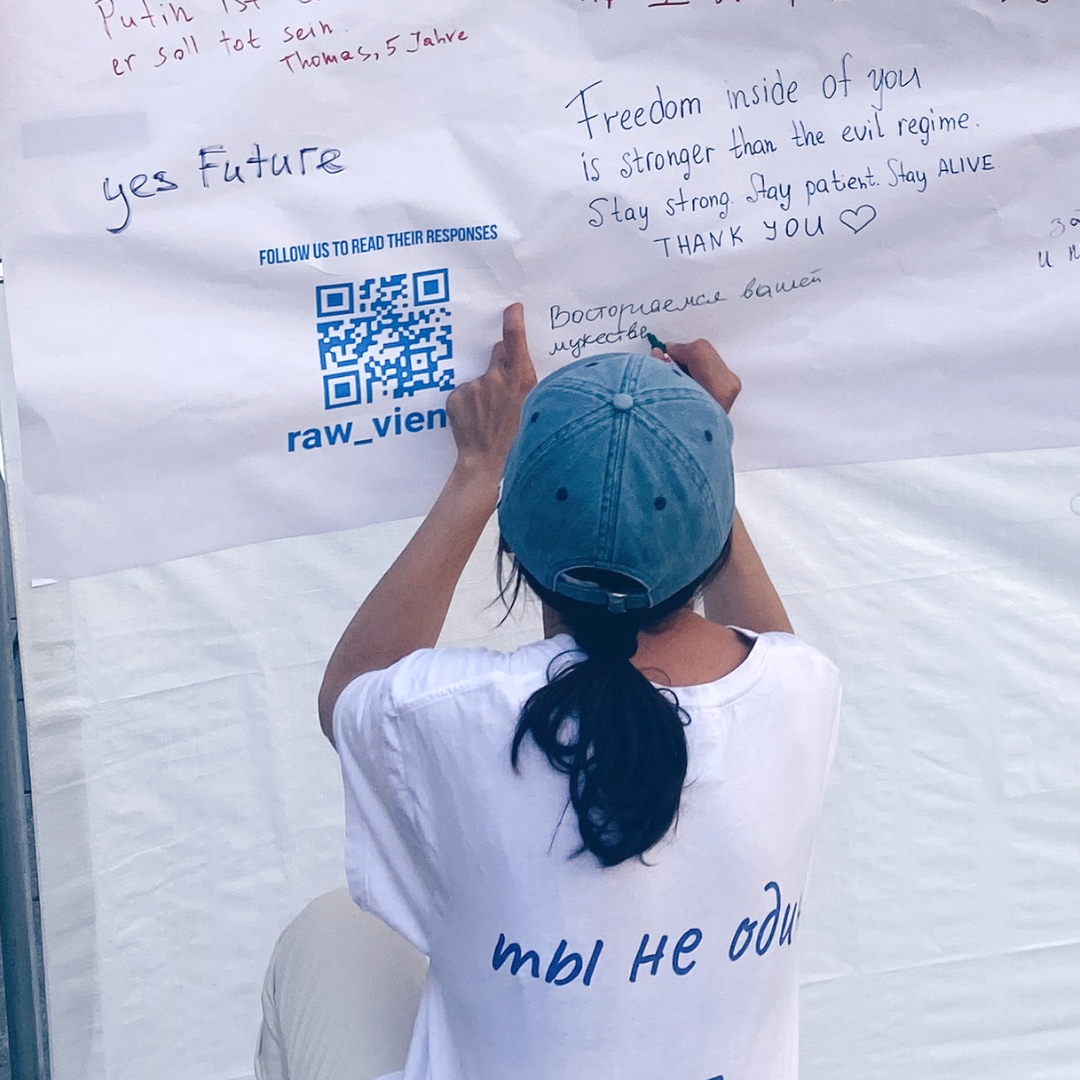 Putin ist
er soll tot sein.
Thomas, 5 Jahre
Freedom inside of you
is stronger than the evil regime.
Stay strong. Stay patient. Stay ALIVE.
THANK YOU ♡
yes Future
FOLLOW US TO READ THEIR RESPONSES
raw_vien
Восторгаемся вашей
мужестве
ты не оди